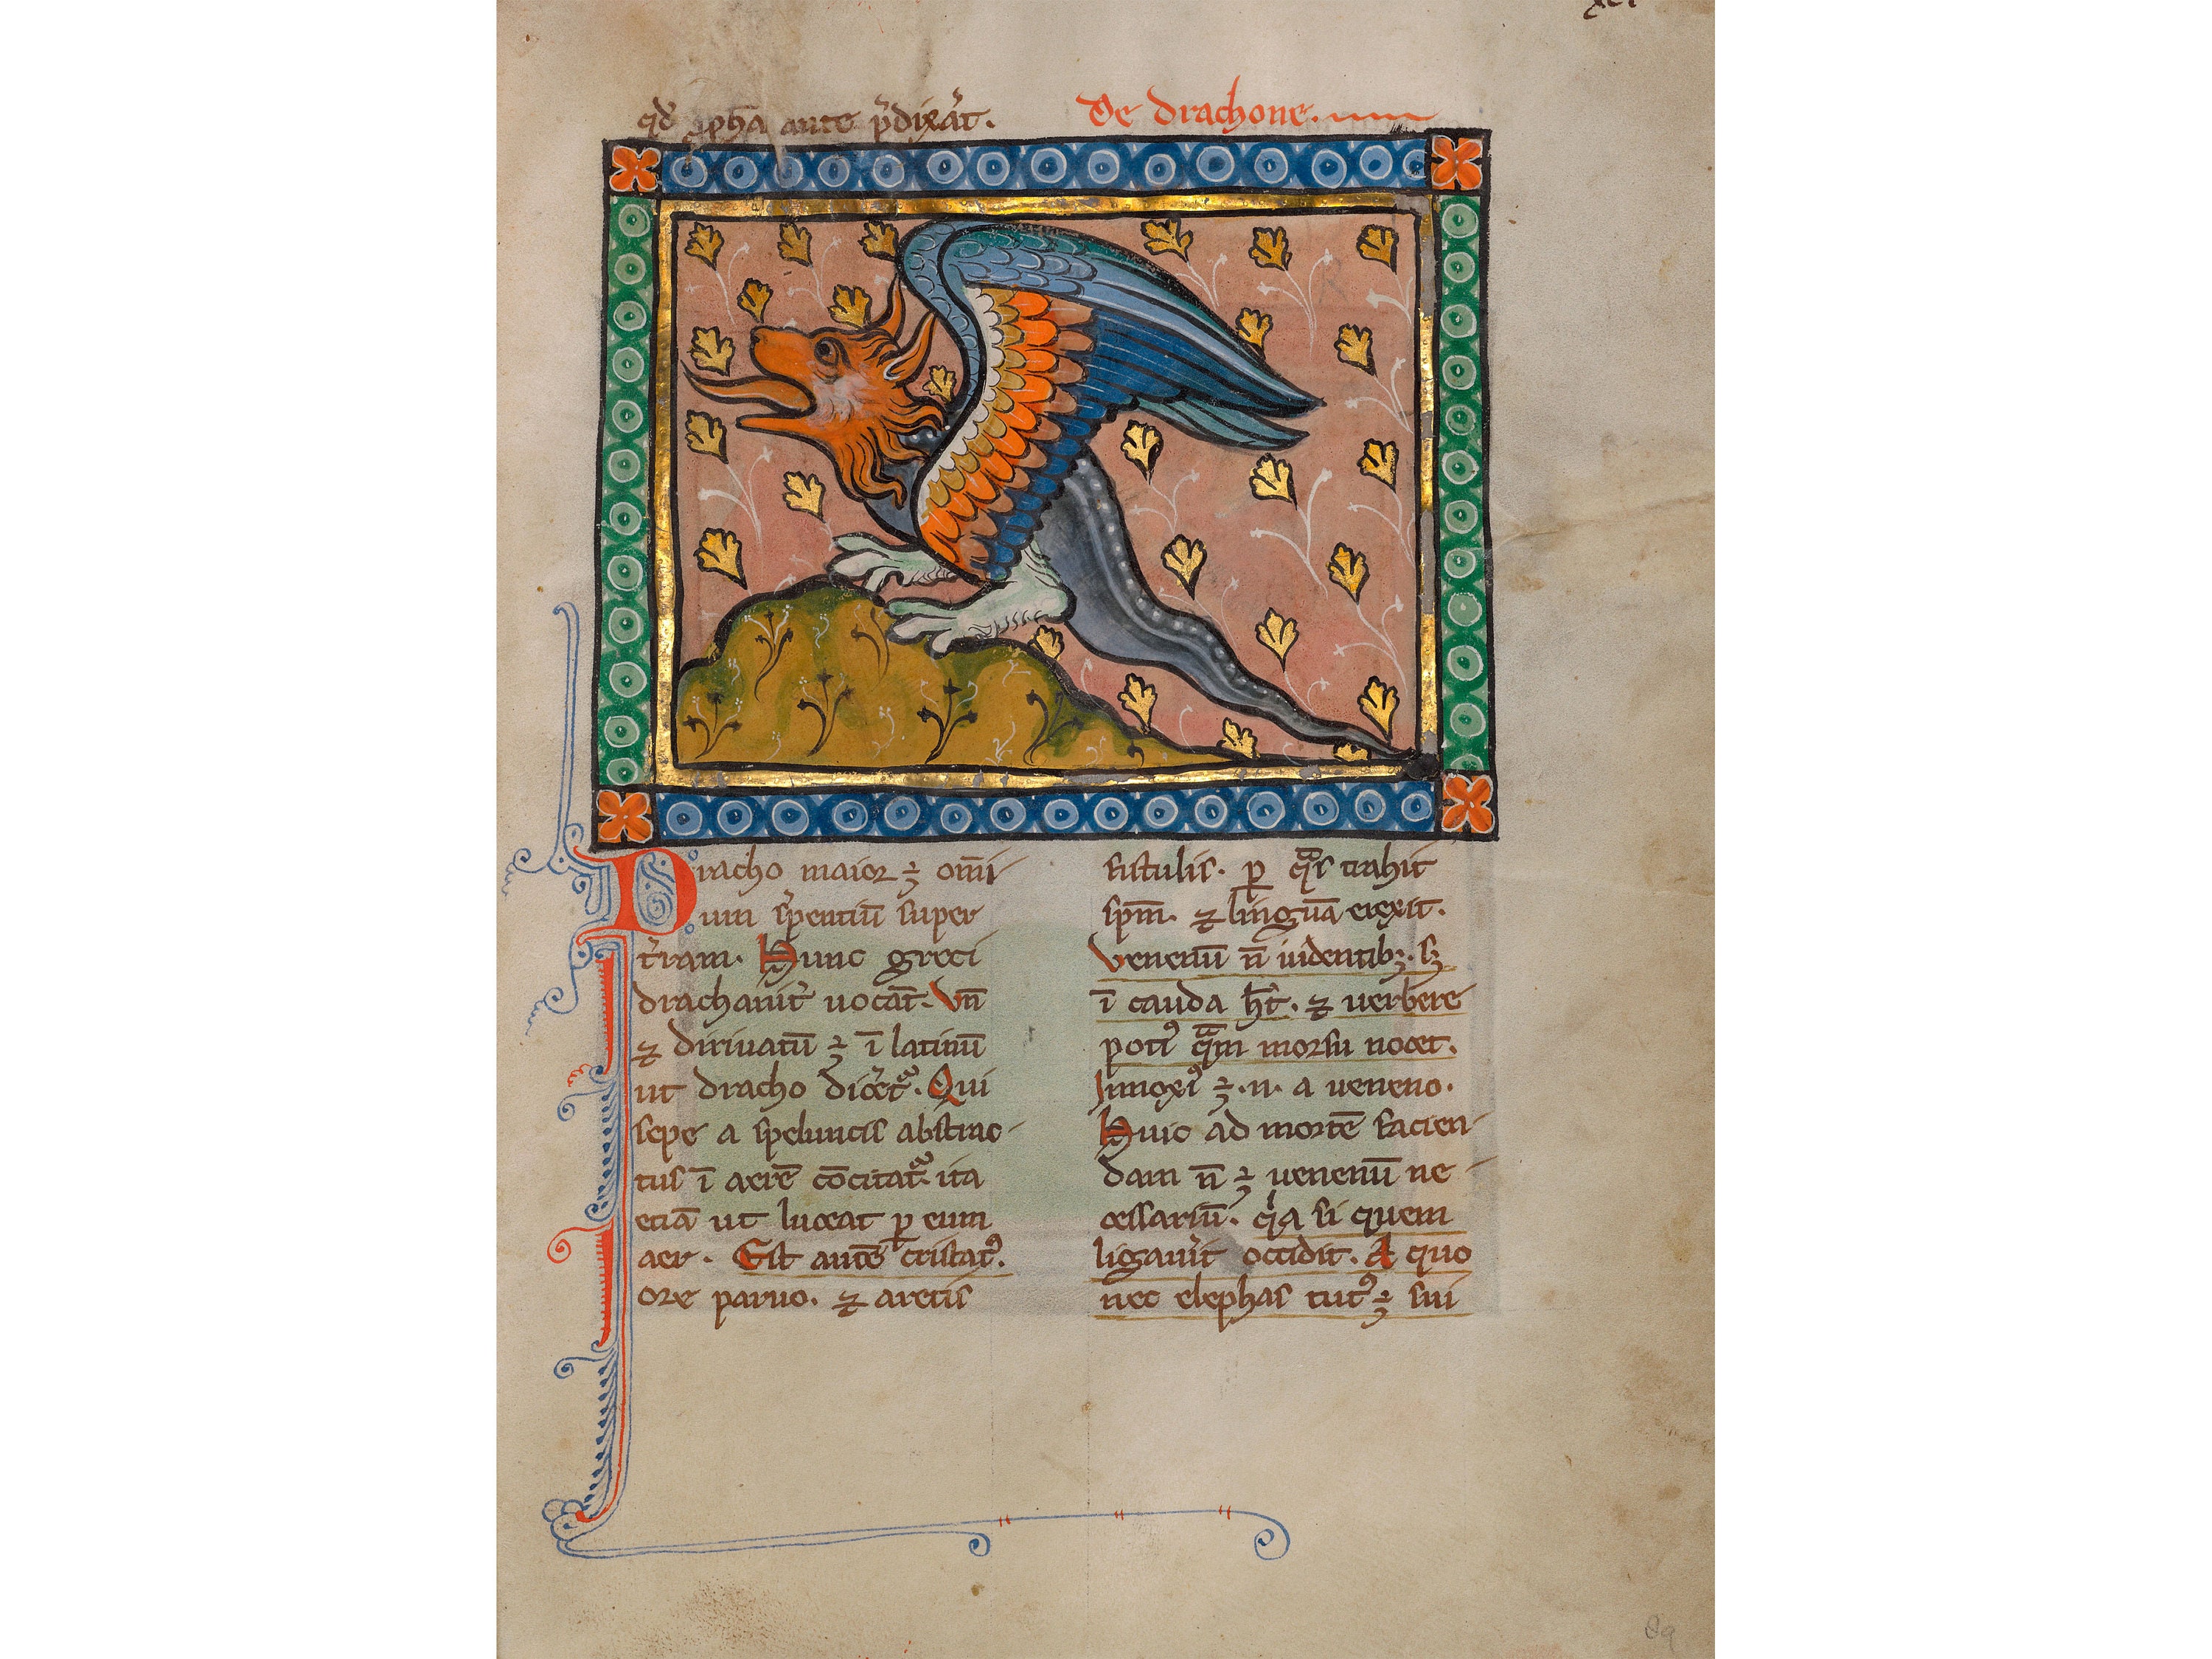 qđ ꝓph̄a ante p̄dixat̄.
De drachone.
Dracho maior ÷ om̄i
um sꝑentiū super
t̄ram. Hunc greci
drachanit̄ uocāt. Vn̄
⁊ diriuatū ÷ ī latinū
ut dracho dicet̄. Qui
sepe a speluncis abstrac
tus ī aerē cōcitat̄ ita
etiā ut luceat ꝑ eum
aer. Est autē cristatꝰ.
ore paruo. ⁊ arctis
fistulis. ꝑ qᵃs trahit
spm̄. ⁊ linguā erexit.
Venenū n̄ ī dentibꝫ. sꝫ
ī cauda h̄t. ⁊ verbere
potiꝰ qᵃm morsu nocet.
Innoxiꝰ ÷ .n. a veneno.
Huic ad mortē facien
dam n̄ ÷ uenenū ne
cessariū. qⁱa si quem
ligauit̄ occidit. A quo
nec elephas tutꝰ ÷ sui
89